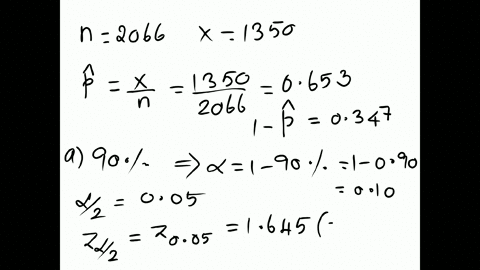 n = 2066 x = 1350
p̂ = x/n = 1350/2066 = 0.653
1 - p̂ = 0.347
a) 90% ⇒ α = 1 - 90% = 1 - 0.90
= 0.10
α/2 = 0.05
Zα/2 = Z0.05 = 1.645 (